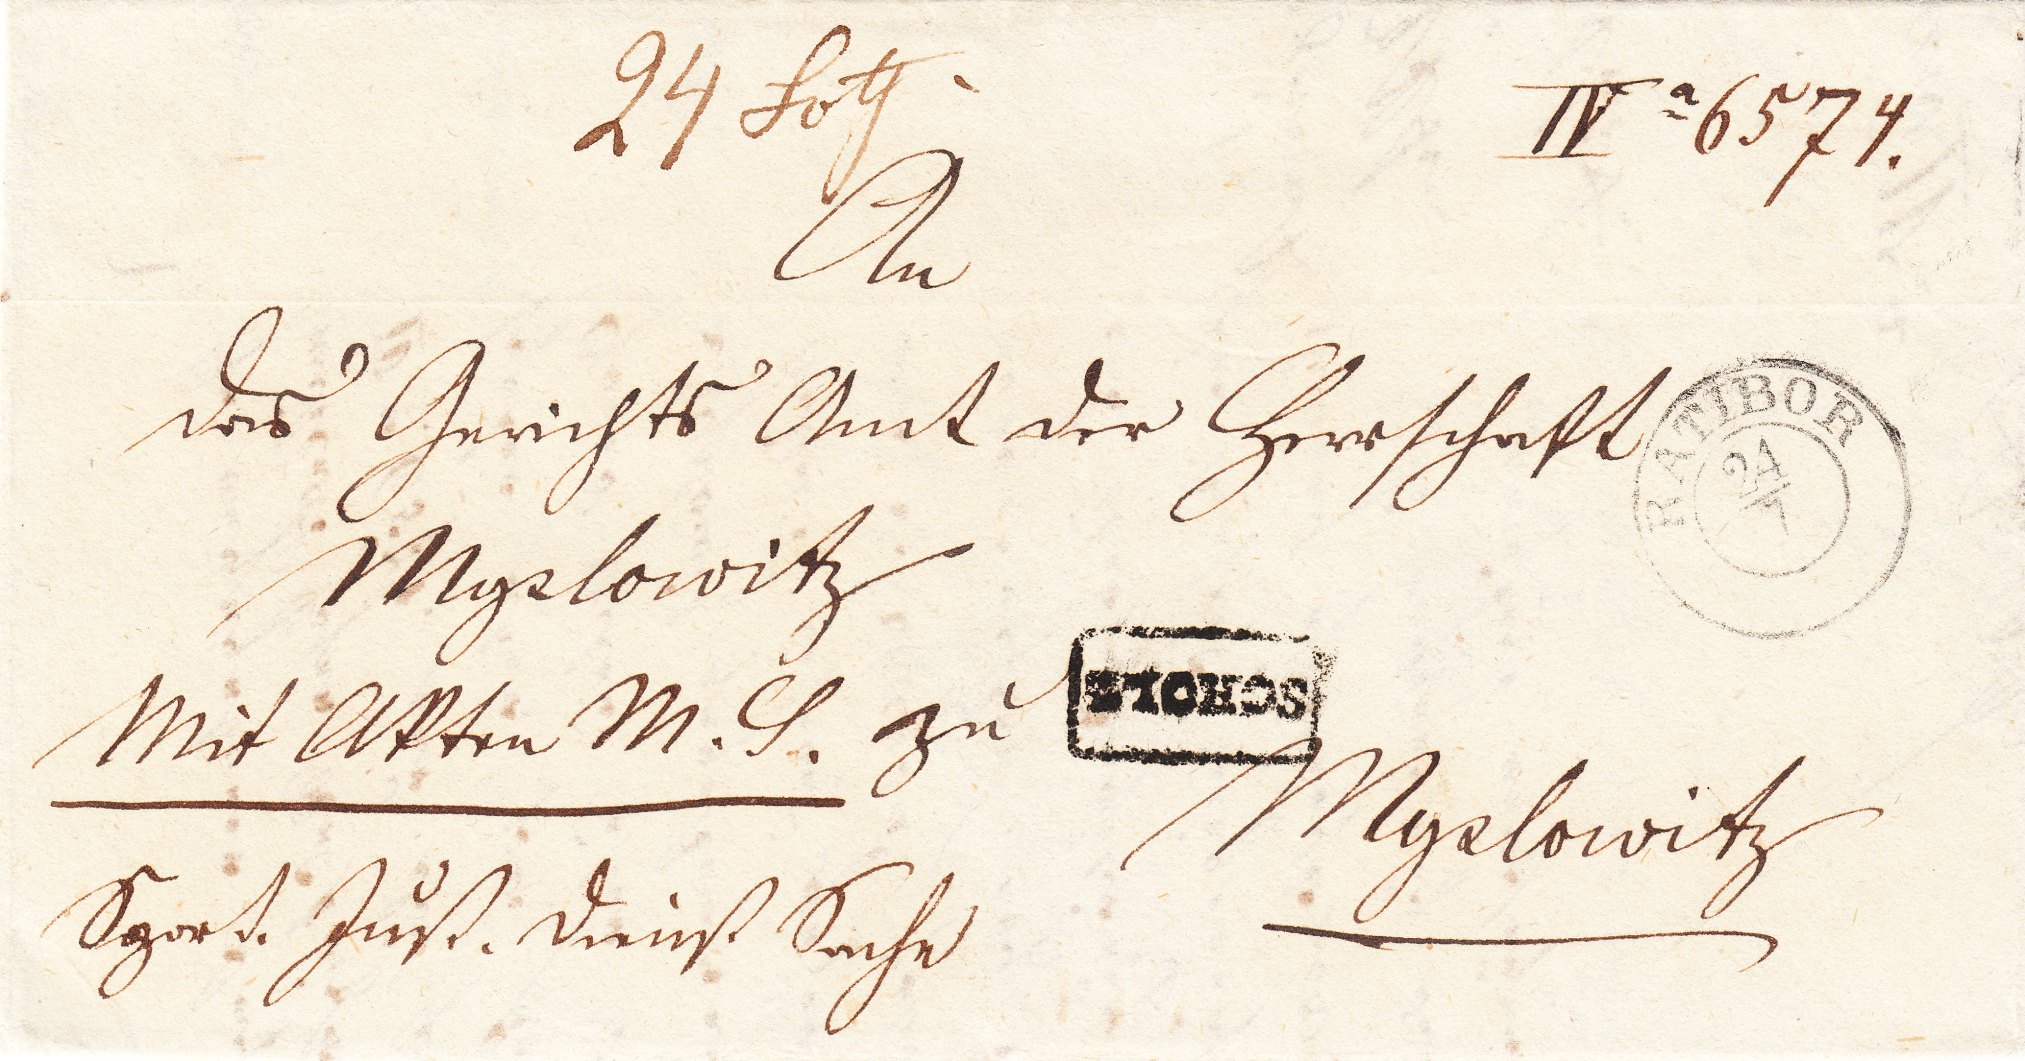 24 Loth
IV a 6574.
An
das Gerichts Amt der Herrschaft
Myslowitz
RATIBOR
24
7
Mit Akten M. S. zu
SCHOLZ
Myslowitz
Port. Just. Dienst Sache